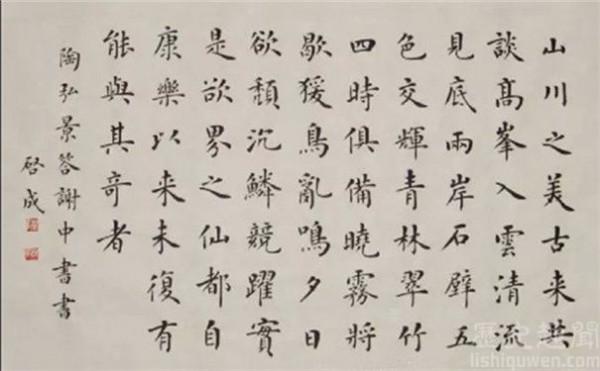 山川之美古来共
談高峯入雲清流
見底兩岸石壁五
色交輝青林翠竹
四時俱備曉霧將
歇猨鳥亂鳴夕日
欲頹沉鱗競躍實
是欲界之仙都自
康樂以来未復有
能與其奇者
陶弘景答謝中書書
启成
歷史趣聞
lishiquwen.com